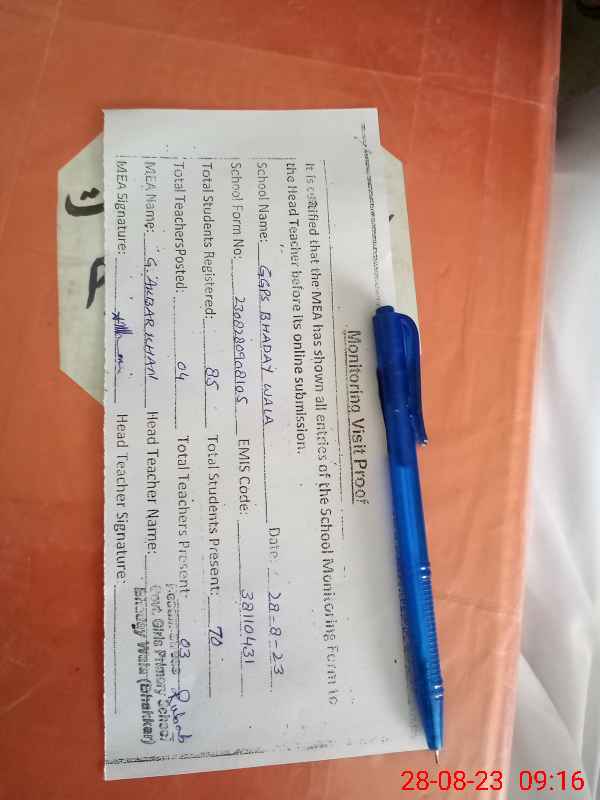 Monitoring Visit Proof
It is certified that the MEA has shown all entries of the School Monitoring Form to
the Head Teacher before its online submission.
School Name: GGPS BHADAY WALA Date: 28-8-23
School Form No: 2308280908105 EMIS Code: 38110431
Total Students Registered: 85 Total Students Present: 70
Total TeachersPosted: 04 Total Teachers Present: 03
MEA Name: G. AKBAR KHAN Head Teacher Name:
MEA Signature: Head Teacher Signature:
Govt. Girls Primary School
Bhaday Wala (Bhakkar)
28-08-23 09:16